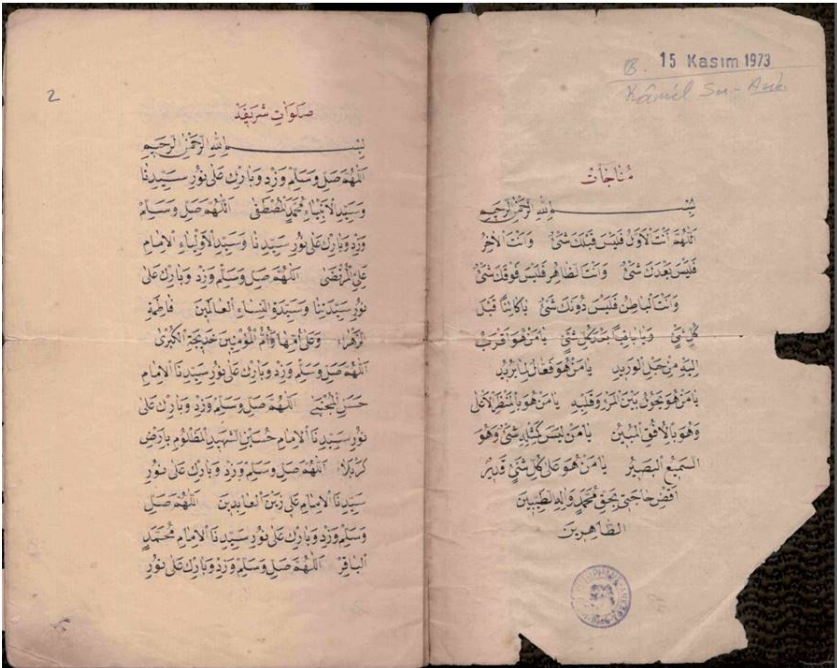 15 Kasım 1973
Kâmil Su-Ank.
مُنَاجَات
بِسْمِ اللهِ الرَّحْمٰنِ الرَّحِيمِ
اَللّٰهُمَّ اَنْتَ الْاَوَّلُ فَلَيْسَ قَبْلَكَ شَيْءٌ وَاَنْتَ الْاٰخِرُ
فَلَيْسَ بَعْدَكَ شَيْءٌ وَاَنْتَ الظَّاهِرُ فَلَيْسَ فَوْقَكَ شَيْءٌ
وَاَنْتَ الْبَاطِنُ فَلَيْسَ دُونَكَ شَيْءٌ يَا كَائِنًا قَبْلَ
كُلِّ شَيْءٍ وَيَا بَاقِيًا بَعْدَ كُلِّ شَيْءٍ يَا مَنْ هُوَ اَقْرَبُ
اِلَيْهِ مِنْ حَبْلِ الْوَرِيدِ يَا مَنْ هُوَ فَعَّالٌ لِمَا يُرِيدُ
يَا مَنْ هُوَ يَحُولُ بَيْنَ الْمَرْءِ وَقَلْبِهِ يَا مَنْ هُوَ بِالْمَنْظَرِ الْاَعْلٰى
وَهُوَ بِالْاُفُقِ الْمُبِينِ يَا مَنْ لَيْسَ كَمِثْلِهِ شَيْءٌ وَهُوَ
السَّمِيعُ الْبَصِيرُ يَا مَنْ هُوَ عَلٰى كُلِّ شَيْءٍ قَدِيرٌ
اِقْضِ حَاجَتِي بِحَقِّ مُحَمَّدٍ وَاٰلِهِ الطَّيِّبِينَ
الطَّاهِرِينَ
2
صَلَوَاتِ شَرِيفَه
بِسْمِ اللهِ الرَّحْمٰنِ الرَّحِيمِ
اَللّٰهُمَّ صَلِّ وَسَلِّمْ وَزِدْ وَبَارِكْ عَلٰى نُورِ سَيِّدِنَا
وَسَيِّدِ الْاَنْبِيَاءِ مُحَمَّدٍ الْمُصْطَفٰى اَللّٰهُمَّ صَلِّ وَسَلِّمْ
وَزِدْ وَبَارِكْ عَلٰى نُورِ سَيِّدِنَا وَسَيِّدِ الْاَوْلِيَاءِ الْاِمَامِ
عَلِيٍّ الْمُرْتَضٰى اَللّٰهُمَّ صَلِّ وَسَلِّمْ وَزِدْ وَبَارِكْ عَلٰى
نُورِ سَيِّدَتِنَا وَسَيِّدَةِ النِّسَاءِ الْعَالَمِينَ فَاطِمَةِ
الزَّهْرَاءِ وَعَلٰى اُمِّهَا وَاُمِّ الْمُؤْمِنِينَ خَدِيجَةَ الْكُبْرٰى
اَللّٰهُمَّ صَلِّ وَسَلِّمْ وَزِدْ وَبَارِكْ عَلٰى نُورِ سَيِّدِنَا الْاِمَامِ
حَسَنِ الْمُجْتَبٰى اَللّٰهُمَّ صَلِّ وَسَلِّمْ وَزِدْ وَبَارِكْ عَلٰى
نُورِ سَيِّدِنَا الْاِمَامِ حُسَيْنِ الشَّهِيدِ الْمَظْلُومِ بِاَرْضِ
كَرْبَلَاءَ اَللّٰهُمَّ صَلِّ وَسَلِّمْ وَزِدْ وَبَارِكْ عَلٰى نُورِ
سَيِّدِنَا الْاِمَامِ عَلِيٍّ زَيْنِ الْعَابِدِينَ اَللّٰهُمَّ صَلِّ
وَسَلِّمْ وَزِدْ وَبَارِكْ عَلٰى نُورِ سَيِّدِنَا الْاِمَامِ مُحَمَّدٍ
الْبَاقِرِ اَللّٰهُمَّ صَلِّ وَسَلِّمْ وَزِدْ وَبَارِكْ عَلٰى نُورِ